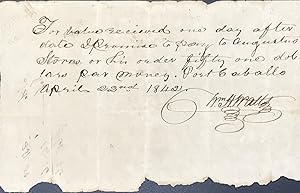 For value received one day after
date I Promise to pay to Augustus
Storrs or his order fifty one dol
lars Par money. Port Caballo
April 22nd 1842
Wm H Watts